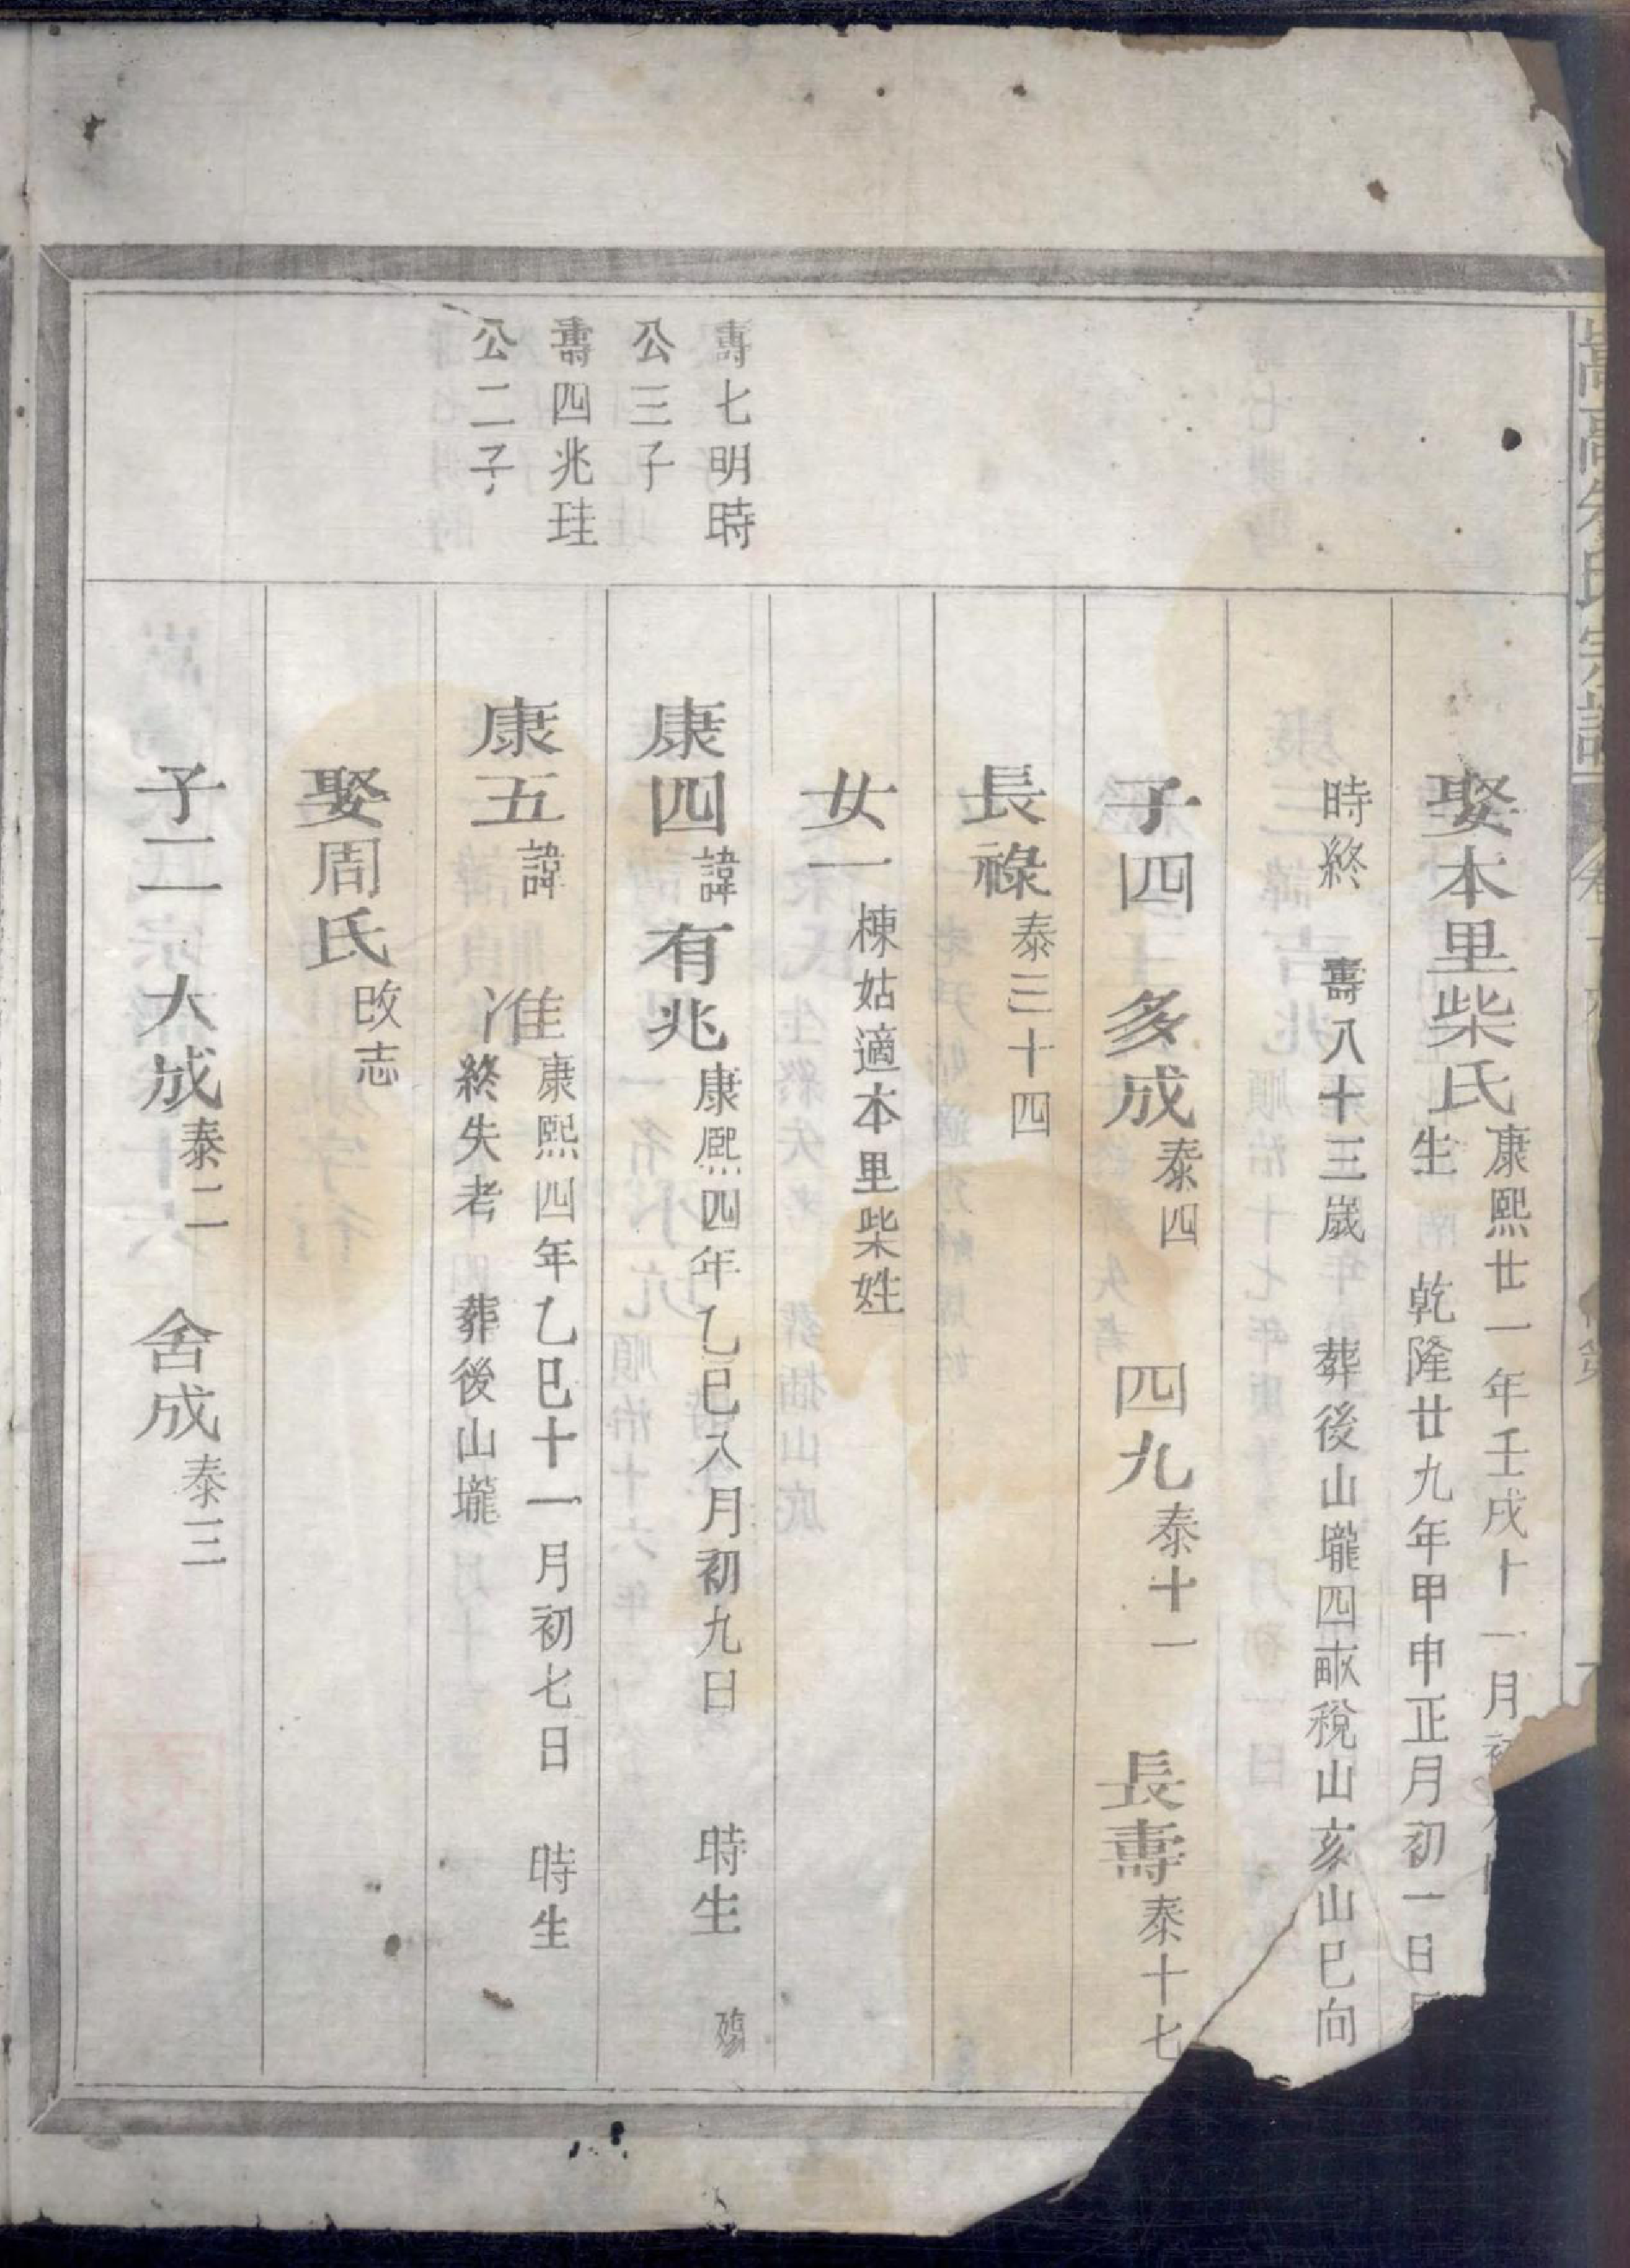 娶本里柴氏康熙廿一年壬戌十一月初
生 乾隆廿九年甲申正月初一日
時終 壽八十三歲 葬後山壠四畝稅山亥山巳向
子四 多成泰四 四九泰十一 長壽泰十七
長祿泰三十四
女一棟姑適本里柴姓
壽七明時
公三子
康四諱有兆康熙四年乙巳八月初九日 時生 殤
壽四兆珪
公二子
康五諱 准康熙四年乙巳十一月初七日 時生
終失考 葬後山壠
娶周氏改志
子二 大成泰二 舍成泰三